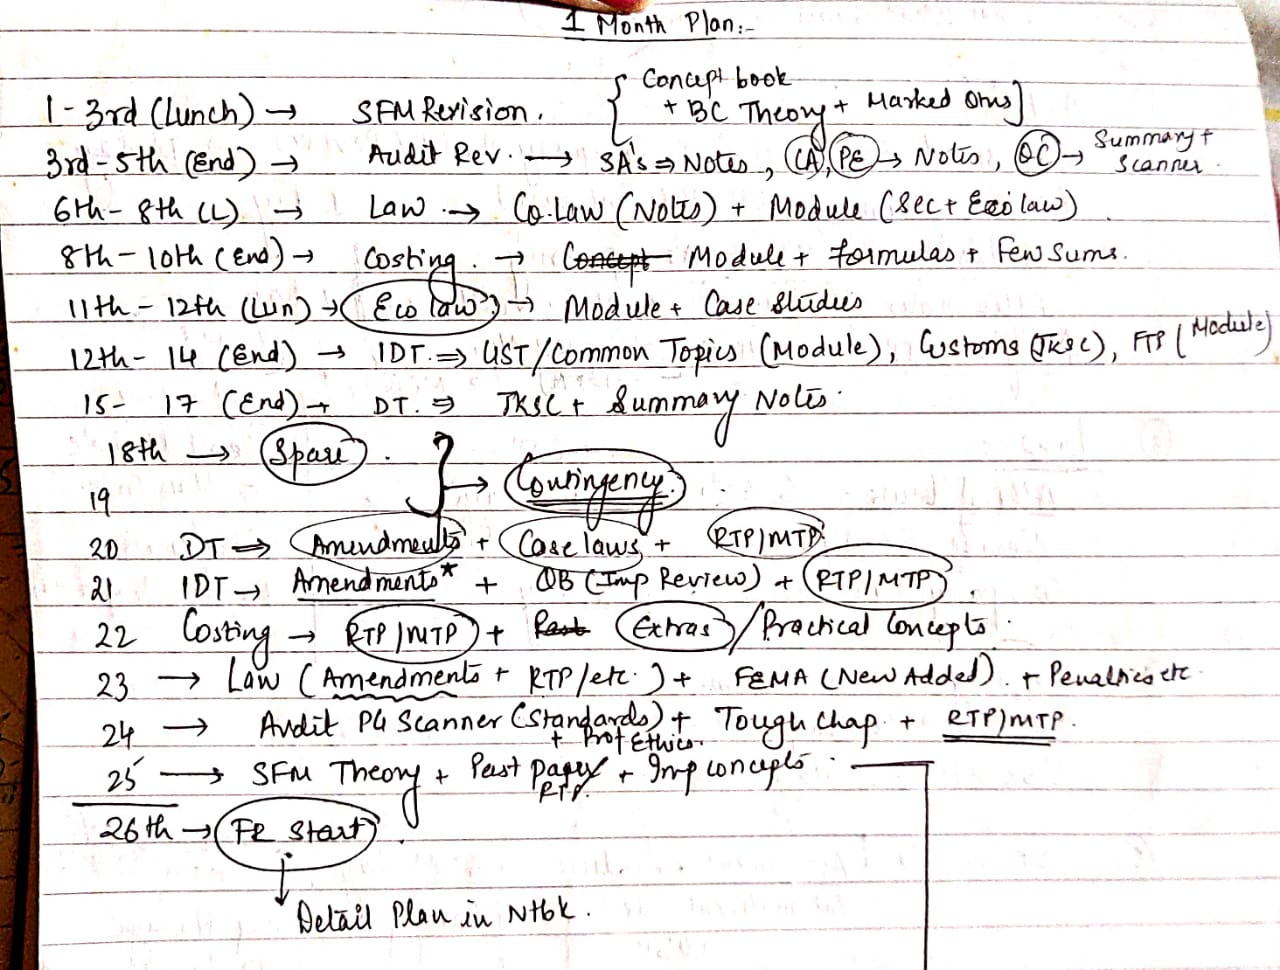 1 Month Plan:-
1 - 3rd (Lunch) → SFM Revision. { Concept book + BC Theory + Marked Qtns]
3rd - 5th (End) → Audit Rev. → SA's ⇒ Notes, (CA), (PE) → Notes, (QC) → Summary + Scanner.
6th - 8th (L) → Law → Co. Law (Notes) + Module (Sec + Eco law)
8th - 10th (End) → Costing. → Concept Module + formulas + Few Sums.
11th - 12th (Lun) → Eco law → Module + Case Studies
12th - 14 (End) → IDT. ⇒ GST/Common Topics (Module), Customs (TKSC), FTP (Module)
15 - 17 (End) → DT. ⇒ TKSC + Summary Notes.
18th → Spare. } → Contingency.
19
20 DT ⇒ Amendments + Case laws + RTP/MTP
21 IDT → Amendments* + QB (Imp Review) + RTP/MTP.
22 Costing → RTP/MTP + Past Extras / Practical Concepts.
23 → Law (Amendments + RTP/etc.) + FEMA (New Added). + Penalties etc.
24 → Audit PG Scanner (Standards) + Tough Chap. + RTP/MTP.
+ Prof Ethics.
25 → SFM Theory + Past Papers + Imp concepts.
RTP.
26th → FR Start.
↓
Detail Plan in Ntbk.